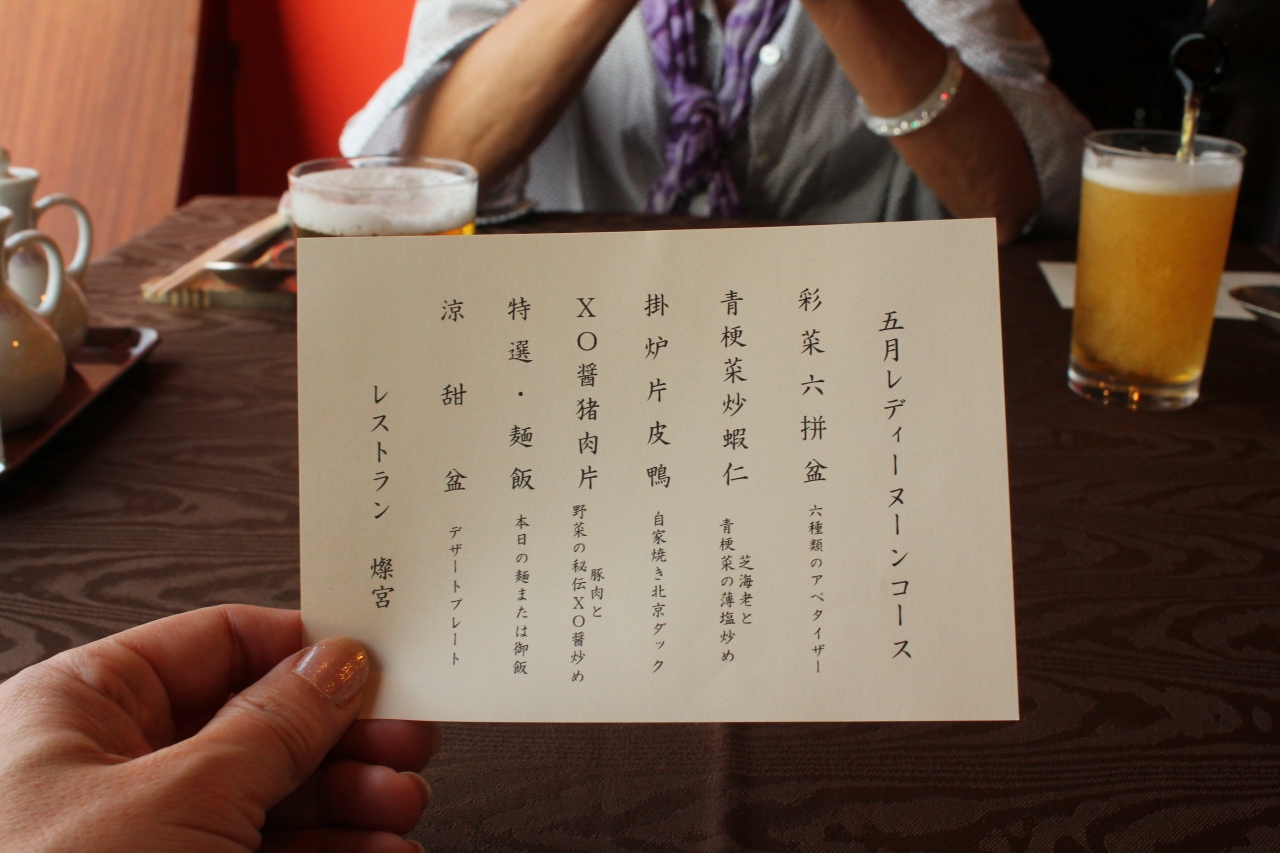 五月レディーヌーンコース
彩菜六拼盆 六種類のアペタイザー
青梗菜炒蝦仁 芝海老と
青梗菜の薄塩炒め
掛炉片皮鴨 自家焼き北京ダック
XO醤猪肉片 豚肉と
野菜の秘伝XO醤炒め
特選・麺飯 本日の麺または御飯
涼甜盆 デザートプレート
レストラン 燦宮